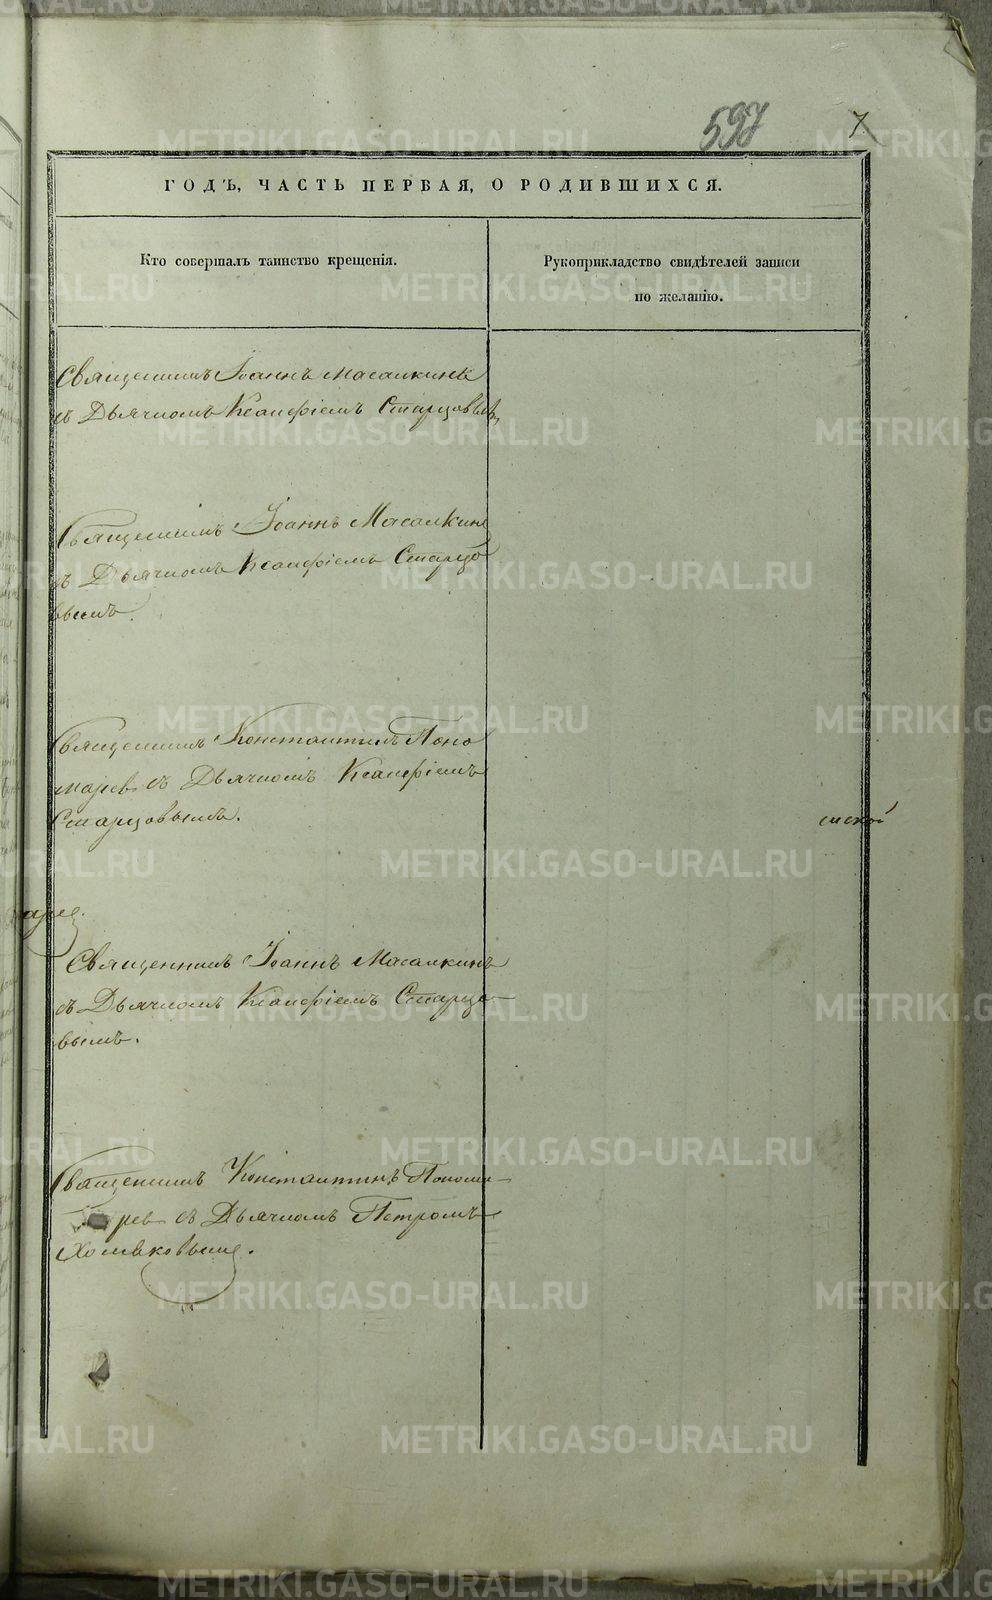 597
7
ГОДЪ, ЧАСТЬ ПЕРВАЯ, О РОДИВШИХСЯ.
Кто совершалъ таинство крещенія.
Рукоприкладство свидѣтелей записи
по желанію.
Священникъ Іоаннъ Масалкинъ
съ Дьячкомъ Ксанфіемъ Старцовымъ
Священникъ Іоаннъ Масалкинъ
съ Дьячкомъ Ксанфіемъ Старцо
вымъ.
Священникъ Константинъ Поно
марев съ Дьячкомъ Ксанфіемъ
Старцовымъ.
Священникъ Іоаннъ Масалкинъ
съ Дьячкомъ Ксанфіемъ Старцо-
вымъ.
Священникъ Константинъ Понома-
рев съ Дьячкомъ Петромъ
Хомяковыме.
METRIKI.GASO-URAL.RU